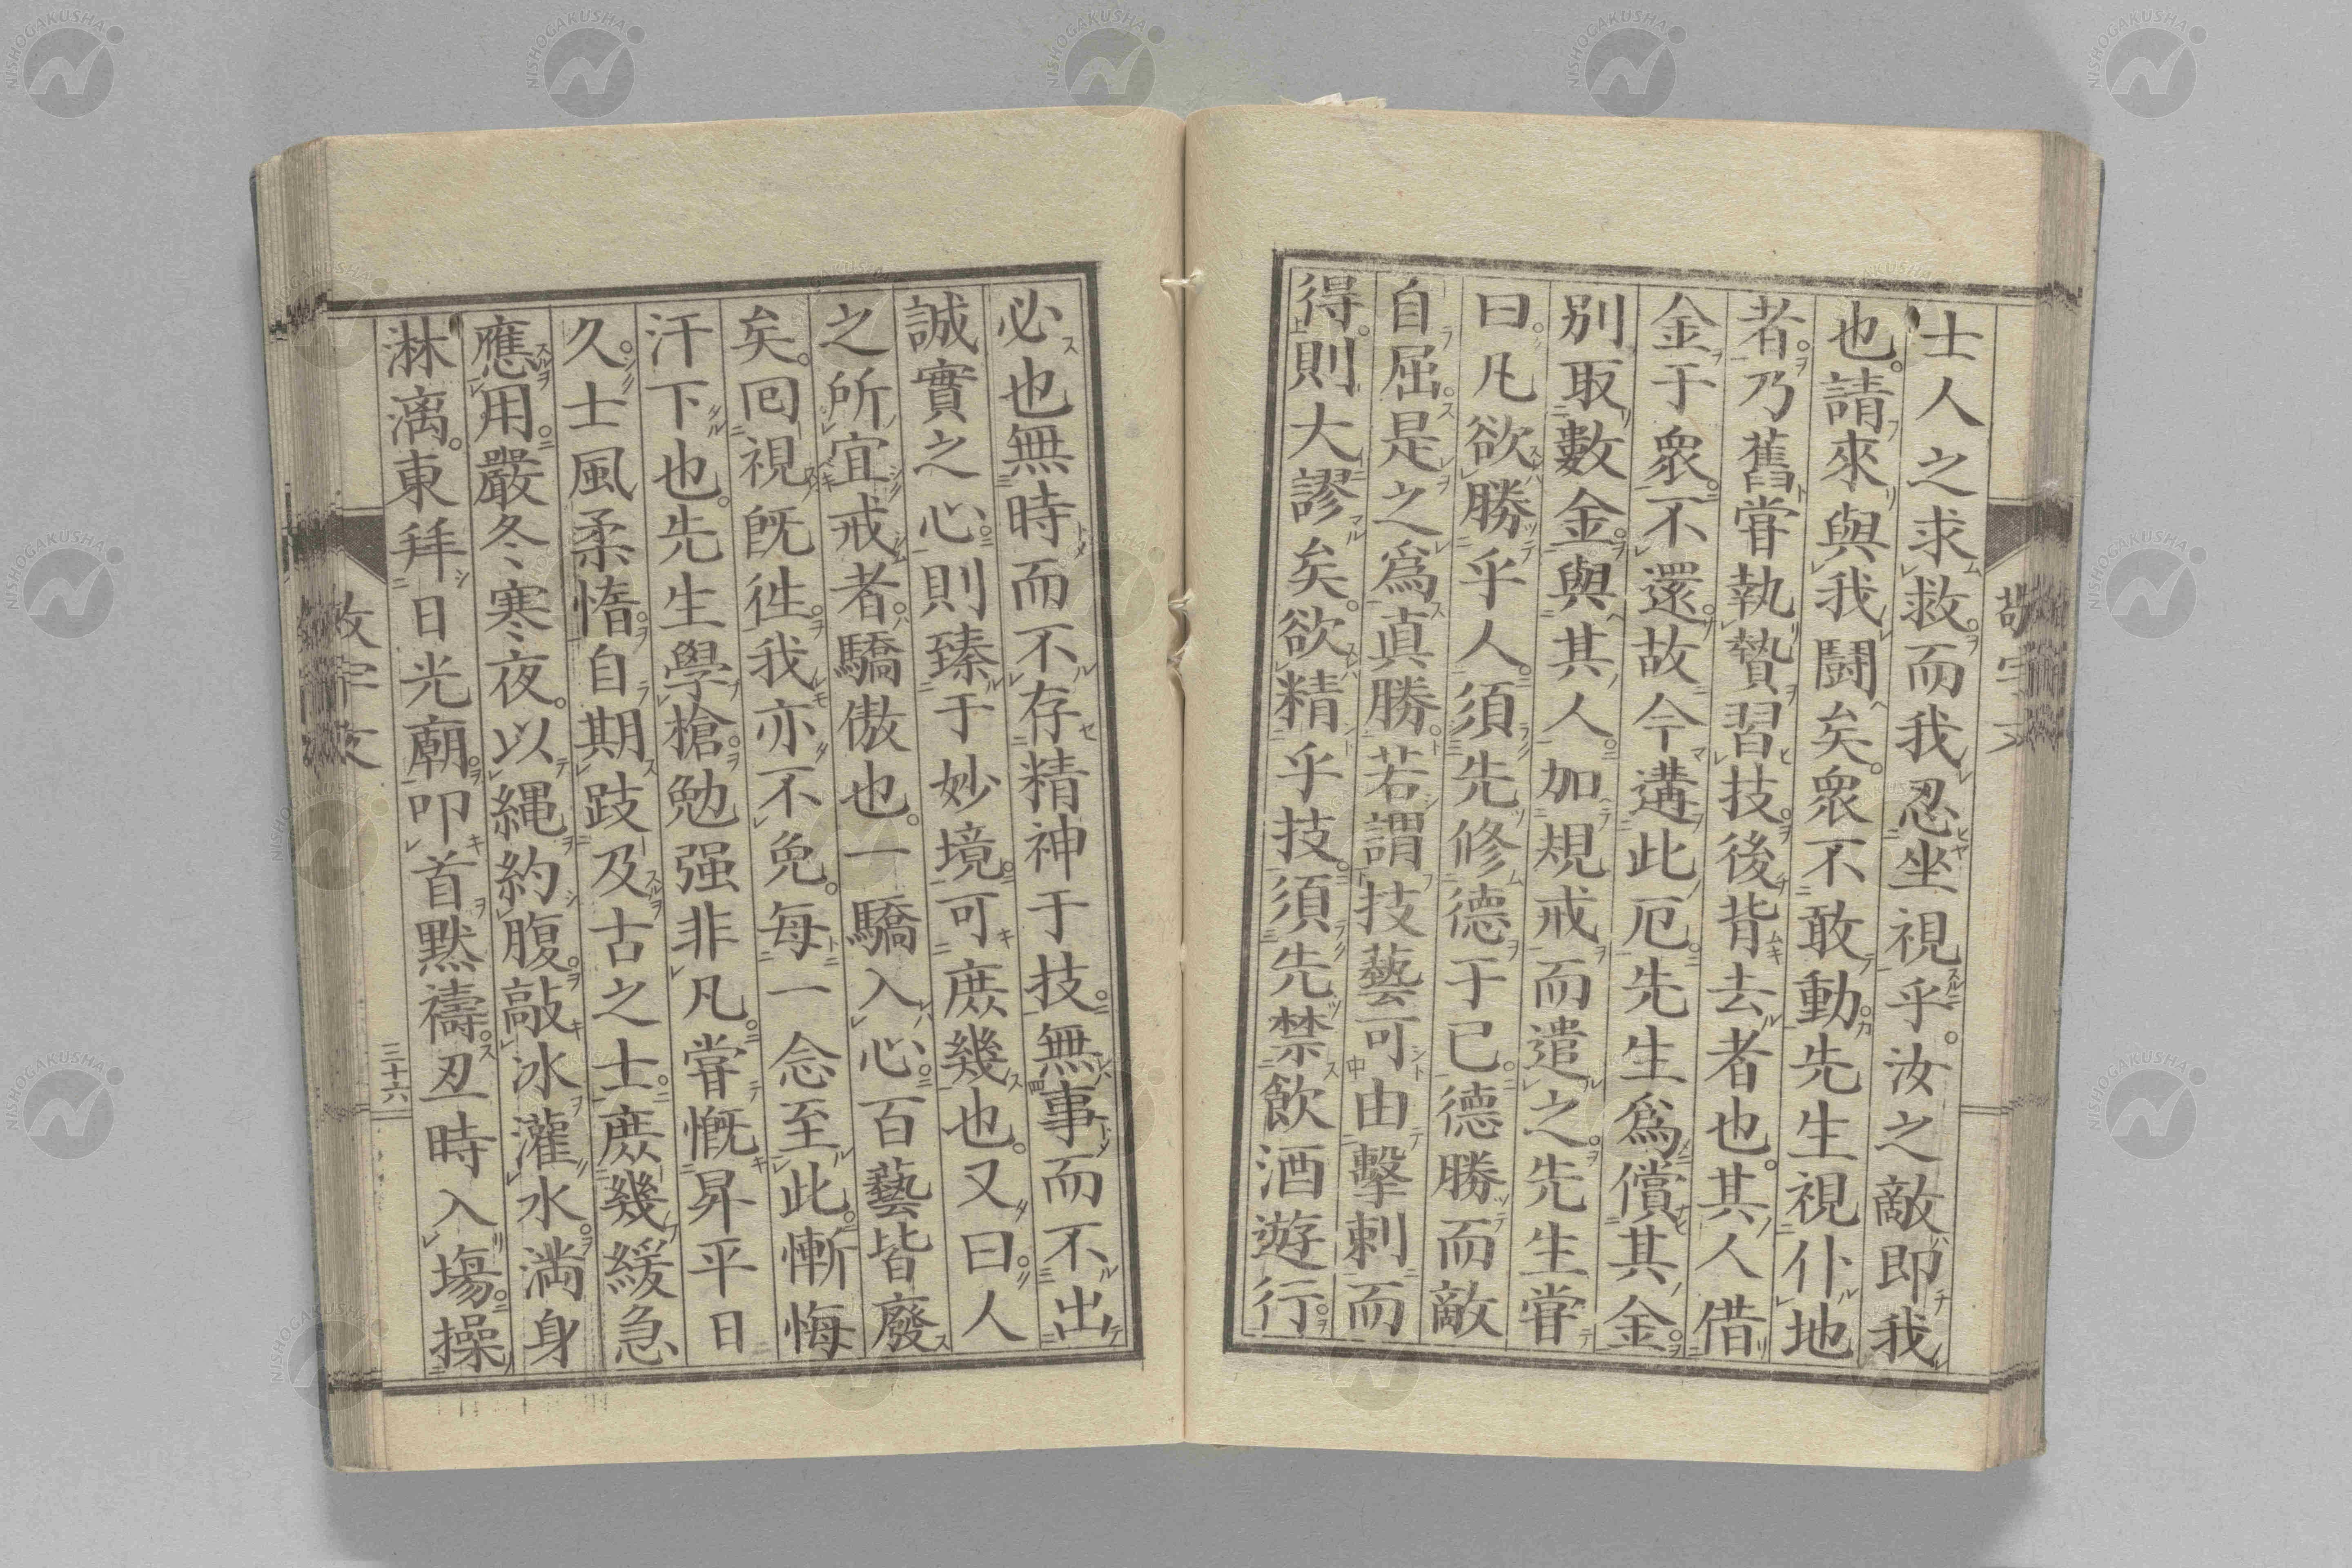 士人之求救而我忍坐視乎。汝之敵即我
也。請來與我鬪矣。衆不敢動。先生視仆地
者。乃舊甞執贄習技。後背去者也。其人借
金于衆。不還。故今遘此厄。先生爲償其金。
別取數金。與其人。加規戒而遣之。先生甞
曰。凡欲勝乎人。須先修德于己。德勝而敵
自屈。是之爲真勝。若謂技藝可由擊刺而
得。則大謬矣。欲精乎技。須先禁飲酒遊行。
必也無時而不存精神于技。無事而不出
誠實之心。則臻于妙境。可庶幾也。又曰。人
之所宜戒者。驕傲也。一驕入心。百藝皆廢
矣。囘視既徃。我亦不免。每一念至此。慚悔
汗下也。先生學槍。勉强非凡。甞慨昇平日
久。士風柔惰。自期跂及古之士。庶幾緩急
應用。嚴冬寒夜。以繩約腹。敲冰灌水。満身
淋漓。東拜日光廟。叩首黙禱。丑時入塲。操
三十六